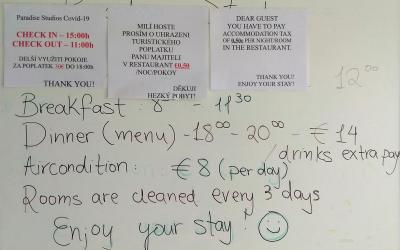 Paradise Studios Covid-19
CHECK IN – 15:00h
CHECK OUT – 11:00h
DELŠÍ VYUŽITÍ POKOJE
ZA POPLATEK 30€ DO 18:00h
THANK YOU!
MILÍ HOSTE
PROSÍM O UHRAZENI
TURISTICKÉHO
POPLATKU
PANU MAJITELI
V RESTAURANT €0,50
/NOC/POKOY
DĚKUJI
HEZKÝ POBYT!
DEAR GUEST
YOU HAVE TO PAY
ACCOMMODATION TAX
OF 0,50€ PER NIGHT/ROOM
IN THE RESTAURANT.
THANK YOU!
ENJOY YOUR STAY!
12⁰⁰
Breakfast: 8⁰⁰ - 11³⁰
Dinner (menu) - 18⁰⁰ - 20⁰⁰ - € 14
/drinks extra pay
Aircondition: €8 (per day)
Rooms are cleaned every 3 days
Enjoy your stay!